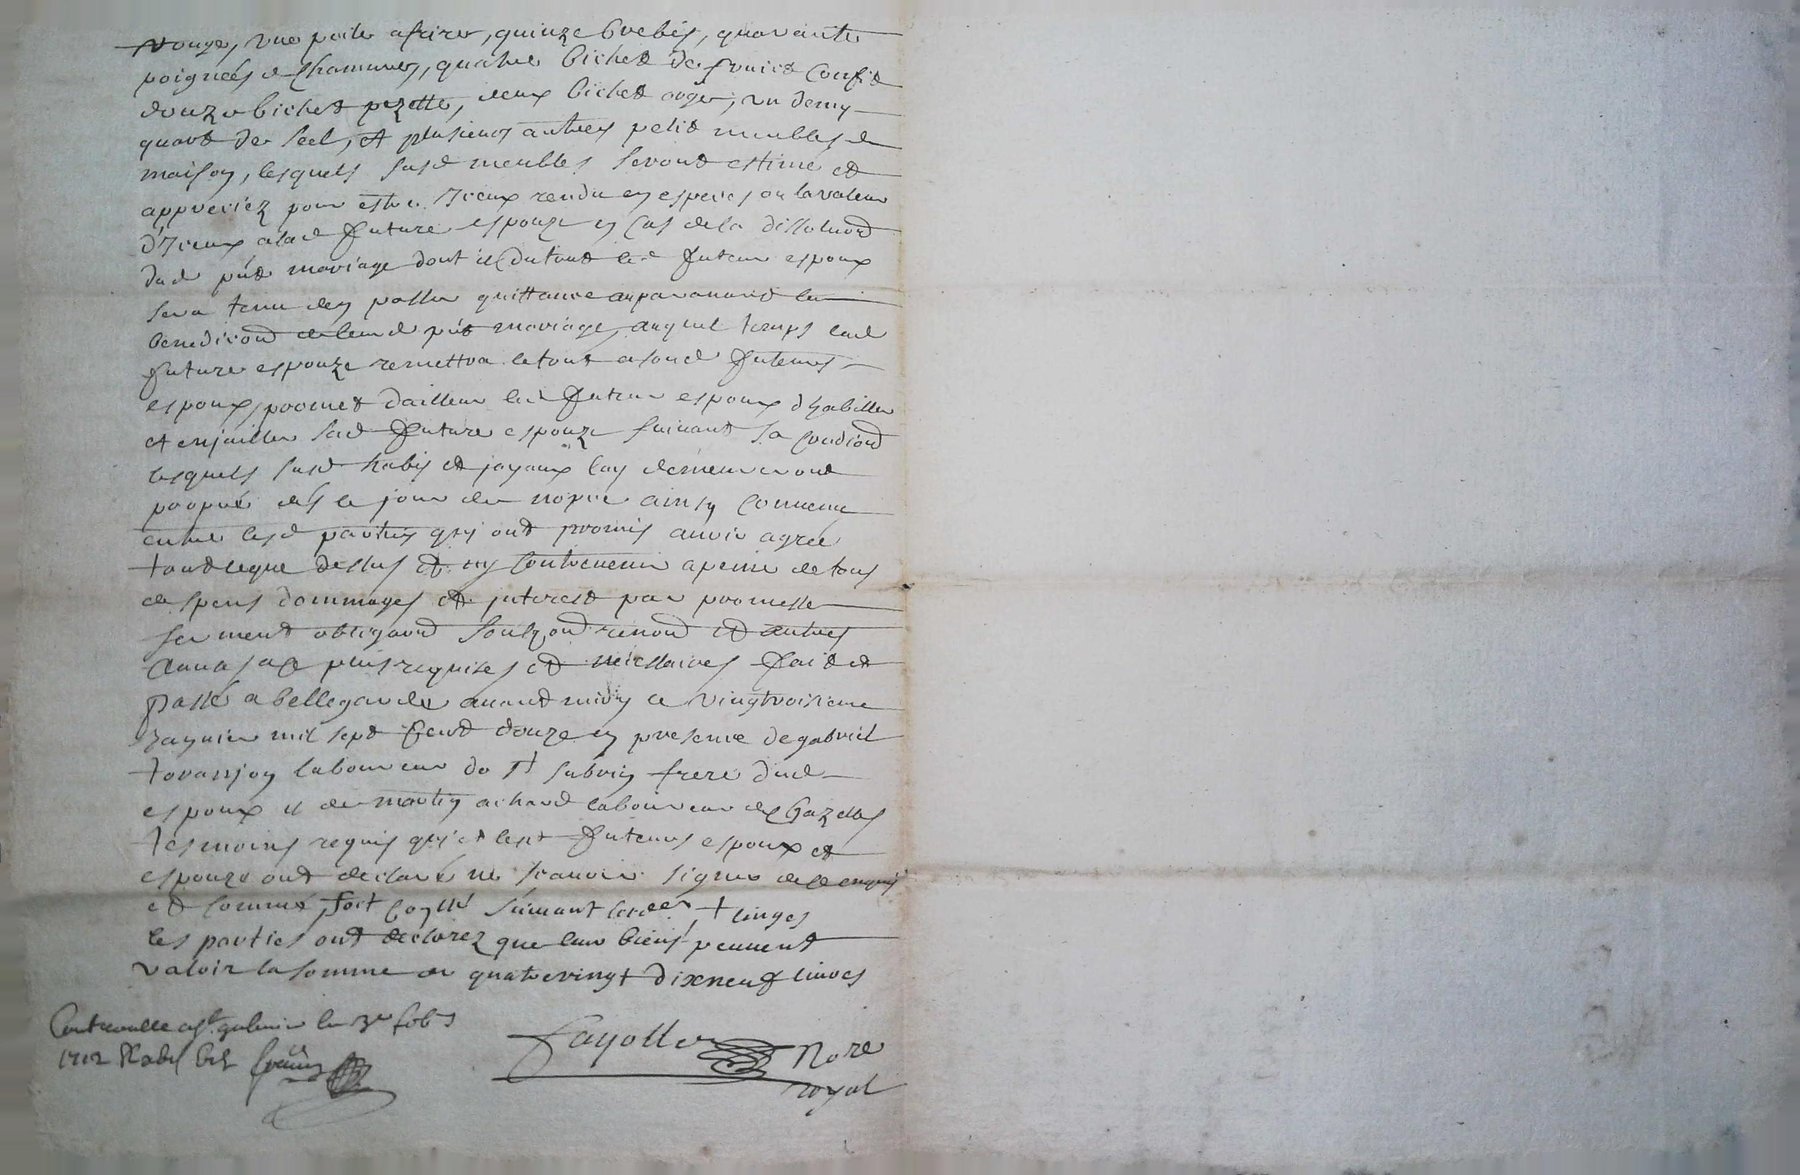 rouge, une poile a frire, quinze brebis, quarante
poignées de chanvre, quatre bichet de
douze bichet pezette, deux bichet orge, un demy
quart de seel, et plusieurs autres petit meubles de
maison, lesquels susd meubles seront estimé et
appreciez pour estre iceux rendu en especes ou la valeur
d'iceux a lad future espouze en cas de la dissoluond
dud pnt mariage dont et du tout led futeur espoux
sera tenu den passer quittance auparavant la
benediond de leurd pnt mariage, auquel temps lad
future espouze remettra le tout a sond futeur
espoux, promet d'ailleur led futeur espoux d'habiller
et enjailler sad future espouze suivant sa condiond
lesquels susd habis et joyaux luy demeureront
propre dés le jour de nopce ainsy convenu
entre lesd parties qui ont promis avoir agreé
tout ce que dessus et ny contrevenir a peine de tous
despens dommages et interest par promesse
serment obligaond renond et autres
clauses plus requises et necessaires fait et
passé a bellegarde avant midy ce vingtroisieme
janvier mil sept cent douze en presence de gabriel
laboureur de St frere dud
espoux et de laboureur de
tesmoins requis qui et lesd futeurs espoux et
espouze ont declaré ne scavoir signer de ce enquis
et sommé, soit suivant
les parties ont declarez que leur biens peuvent
valoir la somme de quatrevingt dix neuf livres
Controullé a St galmier le 3e feb
1712
Fayolle Nore
royal